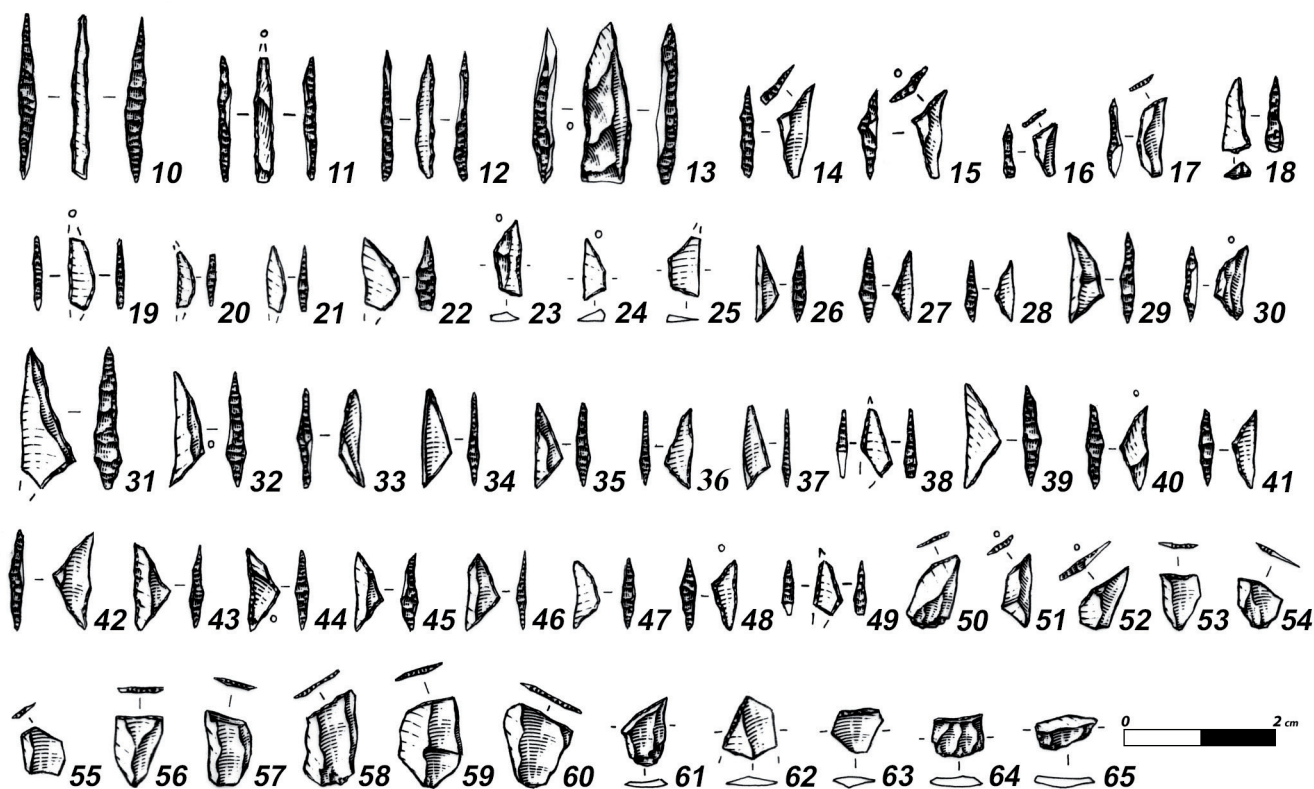 10 11 12 13 14 15 16 17 18
19 20 21 22 23 24 25 26 27 28 29 30
31 32 33 34 35 36 37 38 39 40 41
42 43 44 45 46 47 48 49 50 51 52 53 54
55 56 57 58 59 60 61 62 63 64 65
0 2 cm